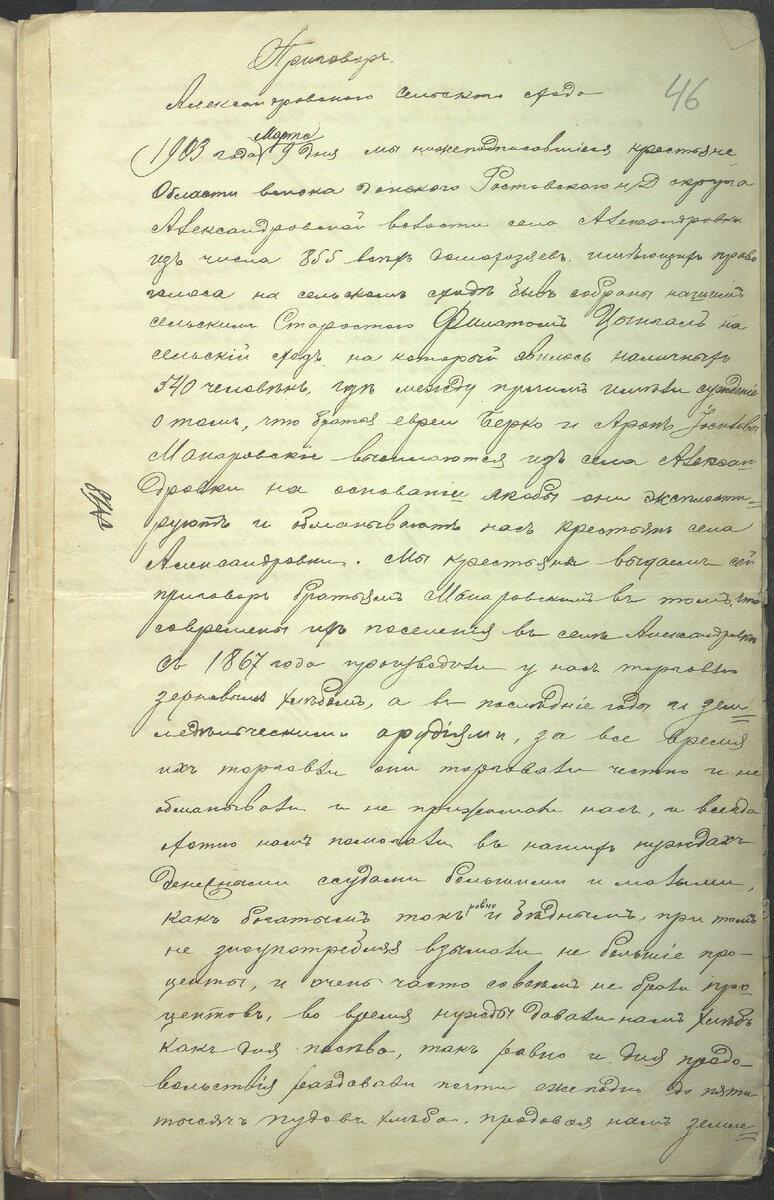 Приговоръ.
46
Александровского сельского схода
1903 года Марта 9 дня мы нижеподписавшіеся крестьяне
Области войска Донского Ростовского н/Д округа
Александровской волости села Александровки
изъ числа 855 всѣхъ домохозяевъ имѣющихъ право
голоса на сельскомъ сходѣ бывъ собраны нашимъ
сельскимъ Старостою Филатомъ на
сельскій сходъ на который явилось наличныхъ
540 человѣкъ, гдѣ между прочимъ имѣли сужденіе
о томъ, что братья евреи Берко и Аронъ
Макаровскіе высылаются изъ села Алексан-
дровки на основаніи якобы они эксплоати-
руютъ и обманываютъ насъ крестьянъ села
Александровки. Мы крестьяне выдаемъ сей
приговоръ братьямъ Макаровскимъ въ томъ, что
со времены ихъ поселенія въ селѣ Александровки
съ 1867 года производили у насъ торговлю
зерновымъ хлѣбомъ, а въ послѣдніе годы и зем-
ледѣльческими орудіями, за все время
ихъ торговли они торговали честно и не
обманывали и не прижимали насъ, и всегда
охотно намъ помогали въ нашихъ нуждахъ
денежными ссудами большими и малыми,
какъ богатымъ такъ равно и бѣднымъ, при томъ
не злоупотребляя взымали не большіе про-
центы, и очень часто совсѣмъ не брали про-
центовъ, во время нужды давали намъ хлѣбъ
какъ для посѣва, такъ равно и для продо-
вольствія раздавали почти ежегодно до пяти
тысячъ пудовъ хлѣба, продавая намъ земле-